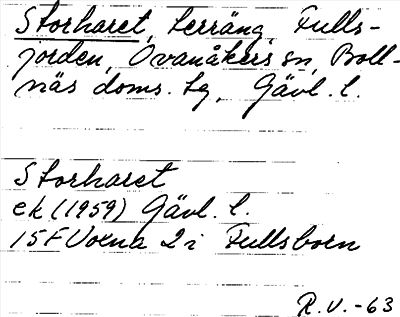 Storharet, terräng, Fulls-
jorden, Ovanåkers sn, Boll-
näs doms. tg, Gävl. l.
Storharet
ek (1959) Gävl. l.
15F Voxna 2 i Fullsboen
R.V.-63